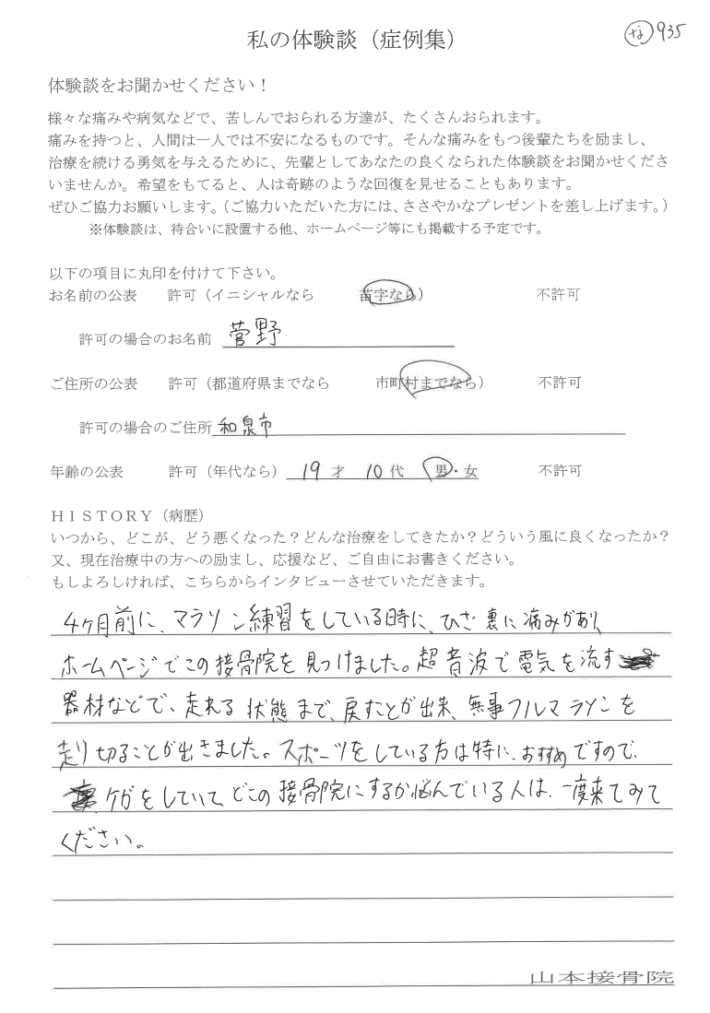 私の体験談（症例集）
な 935
体験談をお聞かせください！
様々な痛みや病気などで、苦しんでおられる方達が、たくさんおられます。
痛みを持つと、人間は一人では不安になるものです。そんな痛みをもつ後輩たちを励まし、
治療を続ける勇気を与えるために、先輩としてあなたの良くなられた体験談をお聞かせくださ
いませんか。希望をもてると、人は奇跡のような回復を見せることもあります。
ぜひご協力お願いします。（ご協力いただいた方には、ささやかなプレゼントを差し上げます。）
※体験談は、待合いに設置する他、ホームページ等にも掲載する予定です。
以下の項目に丸印を付けて下さい。
お名前の公表 許可（イニシャルなら 苗字なら） 不許可
許可の場合のお名前 菅野
ご住所の公表 許可（都道府県までなら 市町村までなら） 不許可
許可の場合のご住所 和泉市
年齢の公表 許可（年代なら） 19 才 10 代 男・女 不許可
ＨＩＳＴＯＲＹ（病歴）
いつから、どこが、どう悪くなった？どんな治療をしてきたか？どういう風に良くなったか？
又、現在治療中の方への励まし、応援など、ご自由にお書きください。
もしよろしければ、こちらからインタビューさせていただきます。
4ヶ月前に、マラソン練習をしている時に、ひざ裏に痛みがあり、
ホームページでこの接骨院を見つけました。超音波で電気を流す
器材などで、走れる状態まで、戻すことが出来、無事フルマラソンを
走り切ることが出きました。スポーツをしている方は特に、おすすめですので、
ケガをしていて、どこの接骨院にするか悩んでいる人は、一度来てみて
ください。
山本接骨院